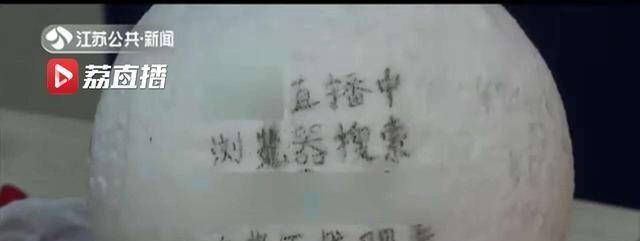 江苏公共·新闻
荔直播
直播中
浏览器搜索